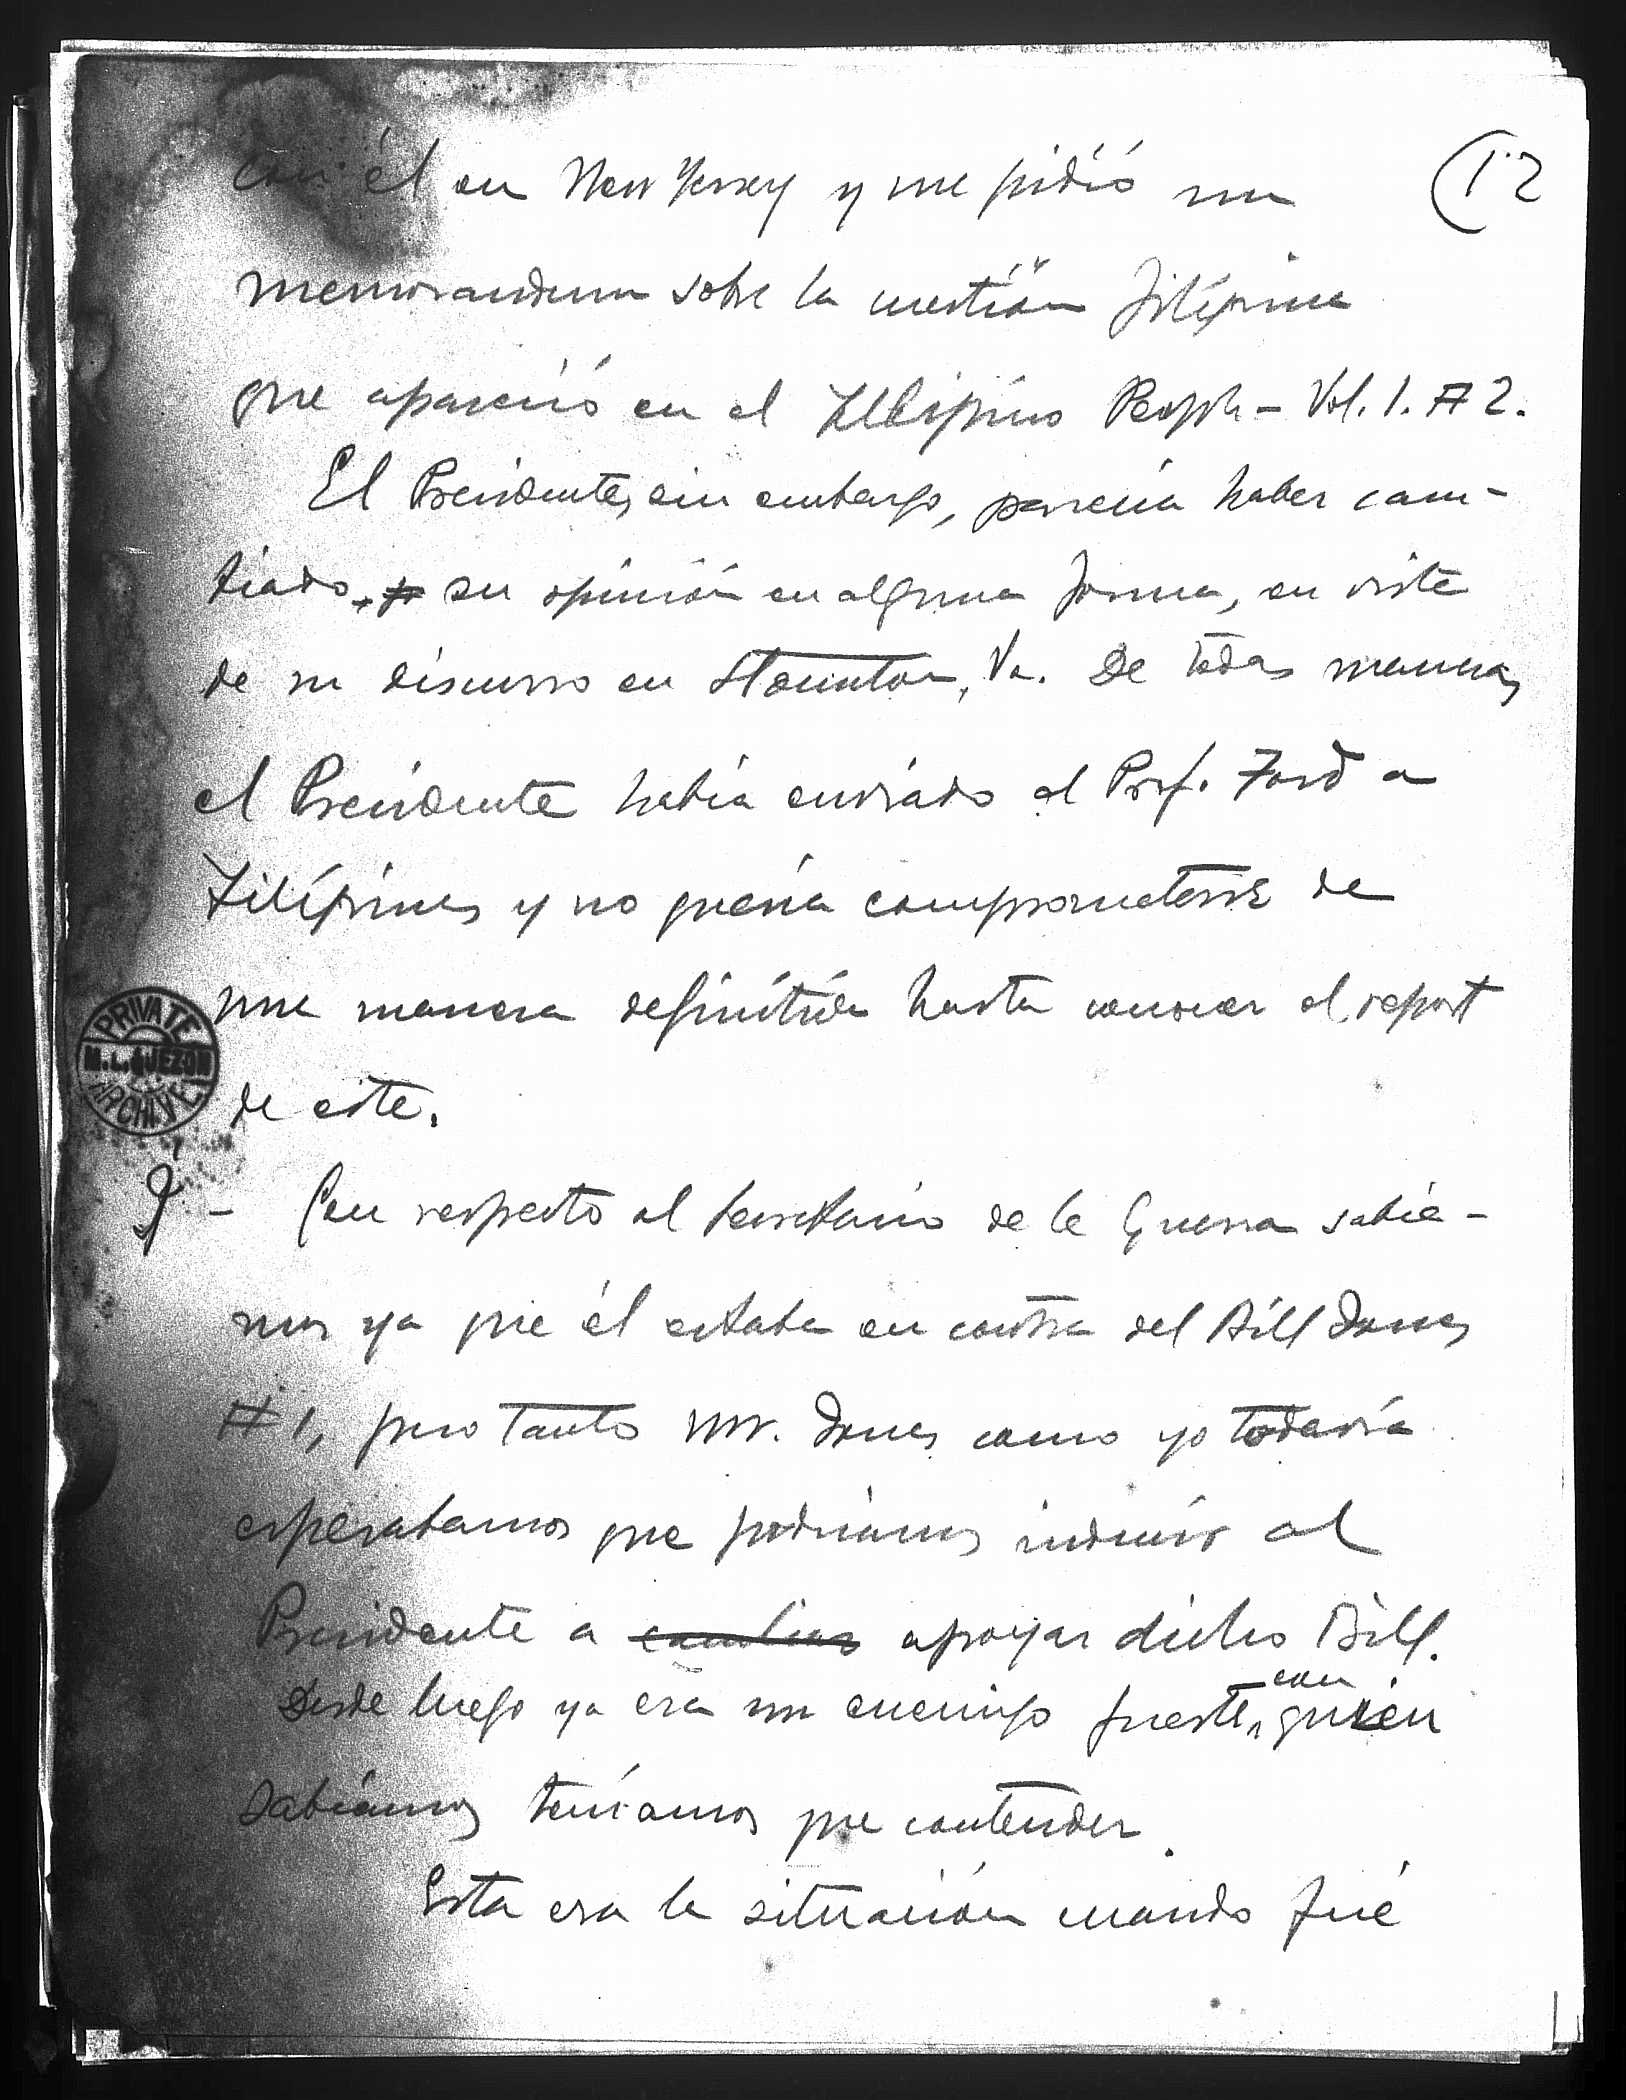 con él en New Jersey y me pidió un
(12
memorandum sobre la cuestión filipina
que apareció en el Filipino People - Vol. 1. # 2.
El Presidente, sin embargo, parecía haber cam-
biado su opinión en alguna forma, en vista
de su discurso en Staunton, Va. De todas maneras,
el Presidente había enviado al Prof. Ford a
Filipinas y no quería comprometerse de
una manera definitiva hasta conocer el report
de este.
PRIVATE
M. L. QUEZON
ARCHIVE
- Con respecto al Secretario de la Guerra sabía-
mos ya que él estaba en contra del Bill Jones
# 1, pero tanto Mr. Jones como yo todavía
esperabamos que podriamos inducir al
Presidente a cambiar apoyar dicho Bill.
Desde luego ya era un enemigo fuerte, con quien
sabíamos teníamos que contender.
Esta era la situación cuando fué